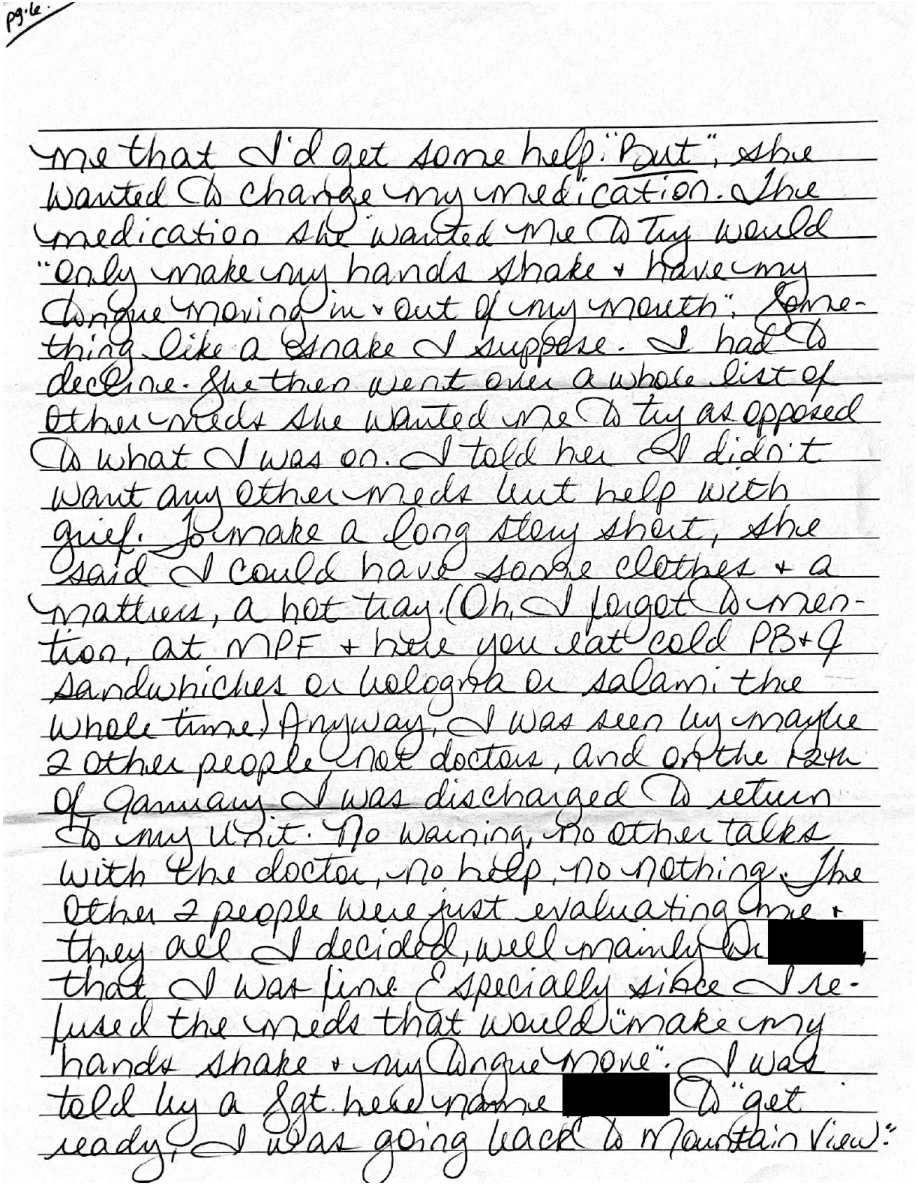 pg.6.
me that I'd get some help. "But", she
wanted to change my medication. The
medication she wanted me to try would
"only make my hands shake + have my
tongue moving in + out of my mouth". Some-
thing like a snake I suppose. I had to
decline. She then went over a whole list of
other meds she wanted me to try as opposed
to what I was on. I told her I didn't
want any other meds but help with
grief. To make a long story short, she
said I could have some clothes + a
mattress, a hot tray. (Oh, I forgot to men-
tion, at MPF + here you eat cold PB+J
sandwhiches or bologna or salami the
whole time) Anyway, I was seen by maybe
2 other people not doctors, and on the 12th
of January I was discharged to return
to my unit. No warning, no other talks
with the doctor, no help, no nothing. The
other 2 people were just evaluating me +
they all I decided, well mainly Dr
that I was fine. Especially since I re-
fused the meds that would "make my
hands shake + my tongue move". I was
told by a Sgt. here name to "get
ready, I was going back to Mountain View."